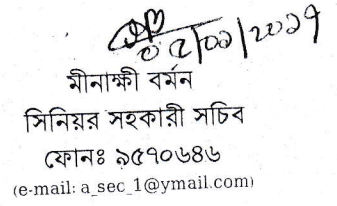 মীনাক্ষী বর্মন
সিনিয়র সহকারী সচিব
ফোনঃ ৯৫৭০৬৪৬
(e-mail: a_sec_1@ymail.com)